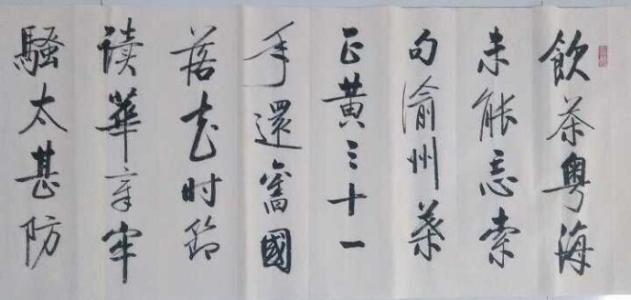 飲茶粵海
未能忘索
句渝州葉
正黄三十一
年還舊國
落花时節
讀華章牢
騷太甚防